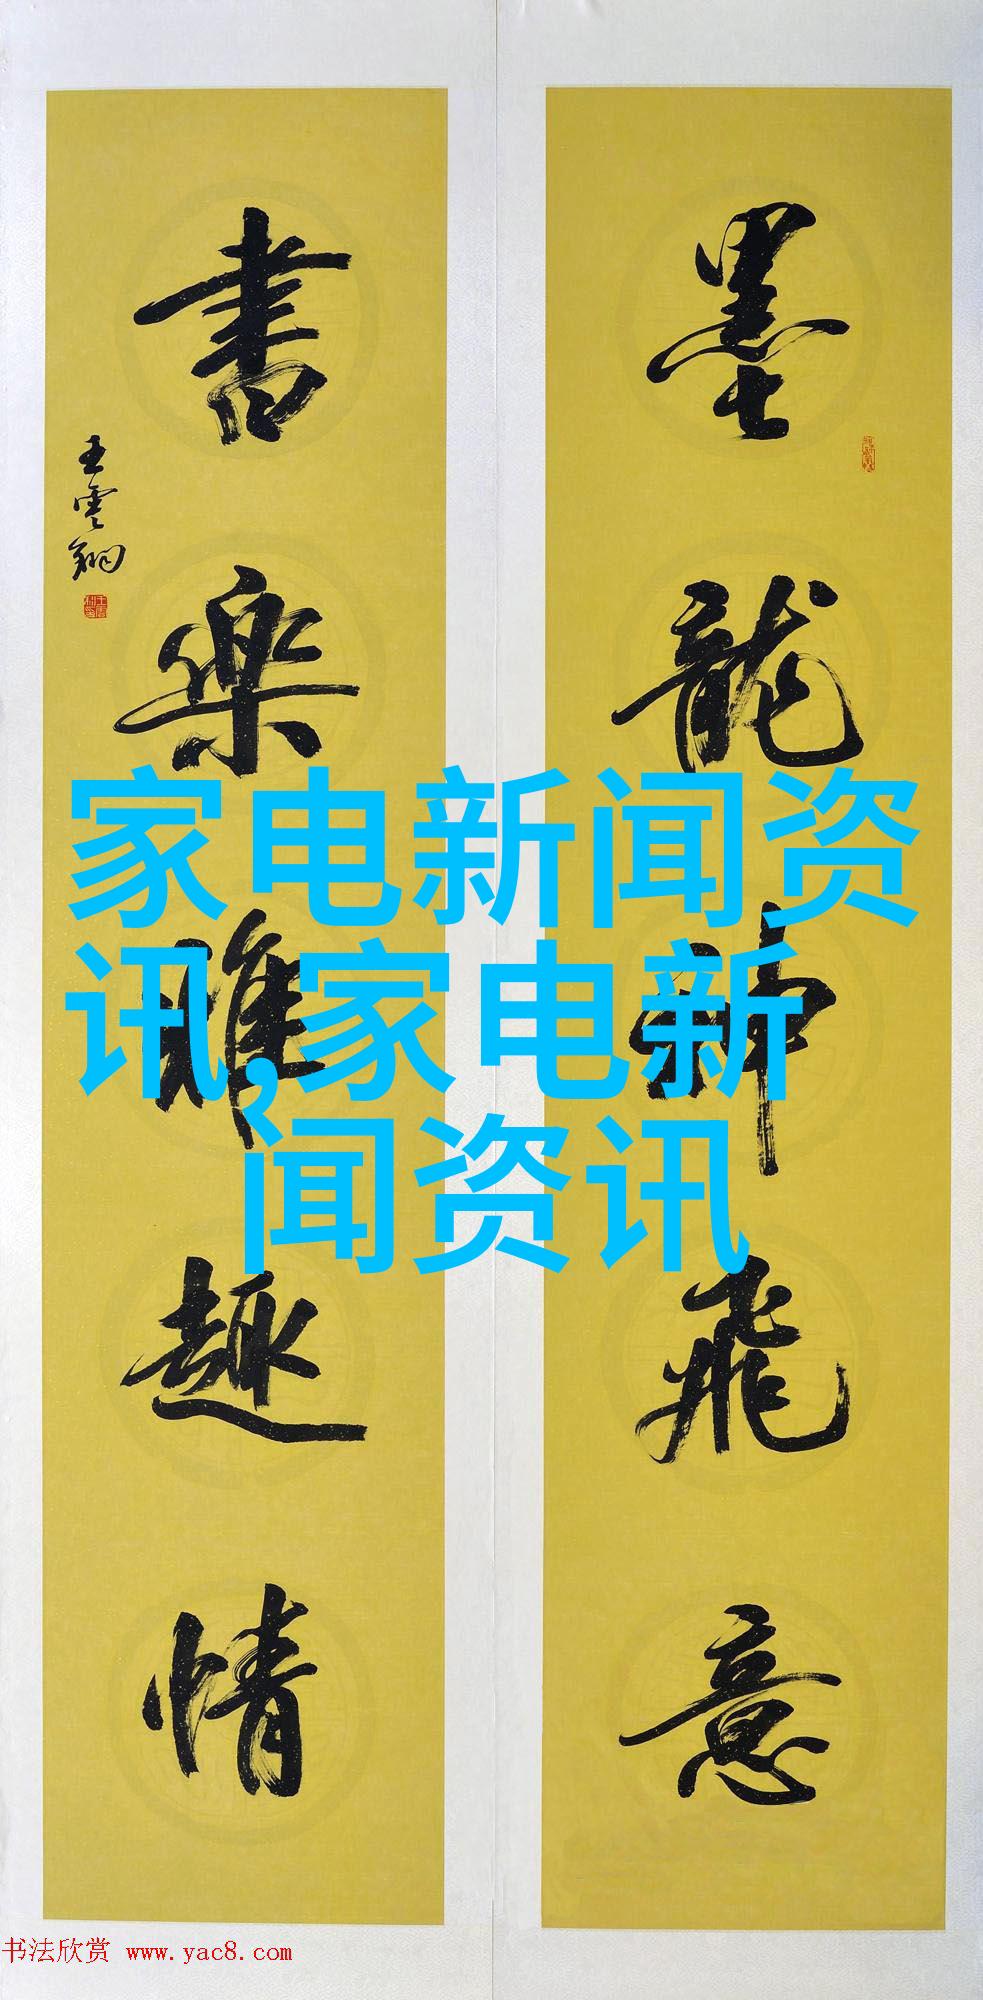 墨龍神飛意
書樂雅趣情
王雲翔
家电新闻资
讯,家电新
闻资讯
书法欣赏 www.yac8.com